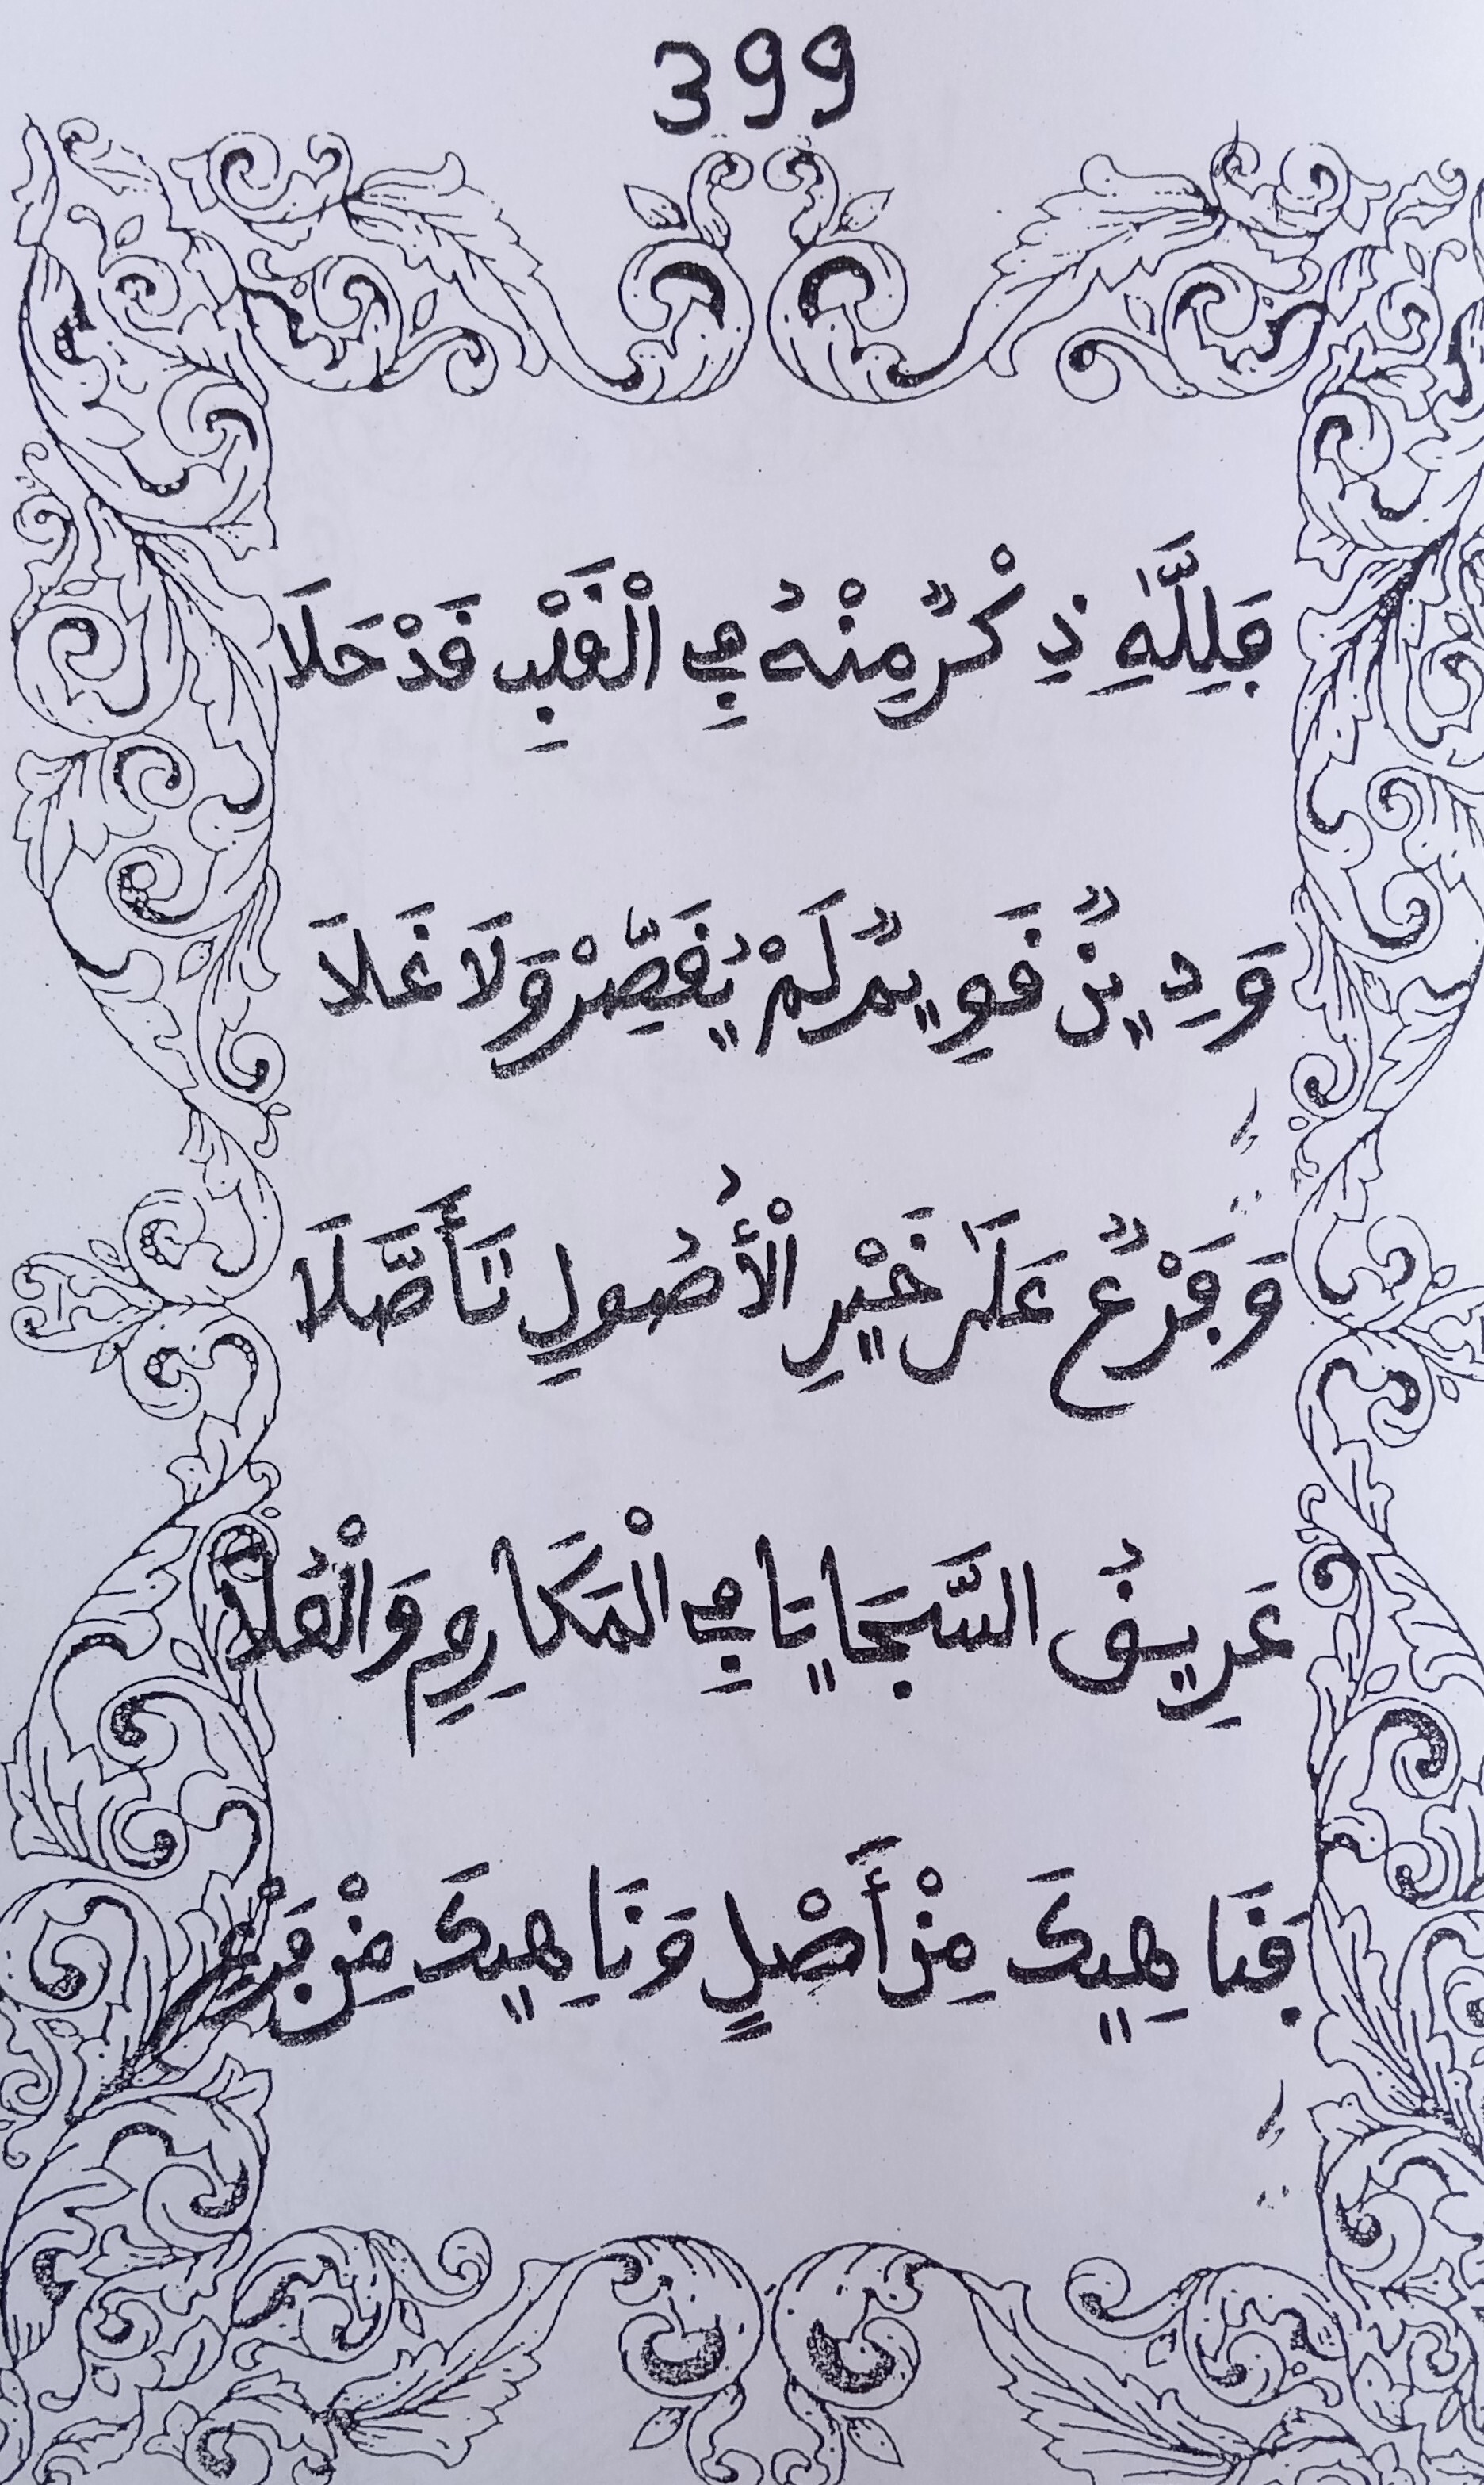 399
فَلِلَّهِ ذِكْرٌ مِنْهُ فِي الْقَلْبِ قَدْ حَلَا
وَدِينٌ قَوِيمٌ لَمْ يُقَصِّرْ وَلَا غَلَا
وَفَرْعٌ عَلَىٰ خَيْرِ الْأُصُولِ تَأَصَّلَا
عَرِيقُ السَّجَايَا فِي الْمَكَارِمِ وَالْعُلَا
فَنَاهِيكَ مِنْ أَصْلٍ وَنَاهِيكَ مِنْ فَرْعِ